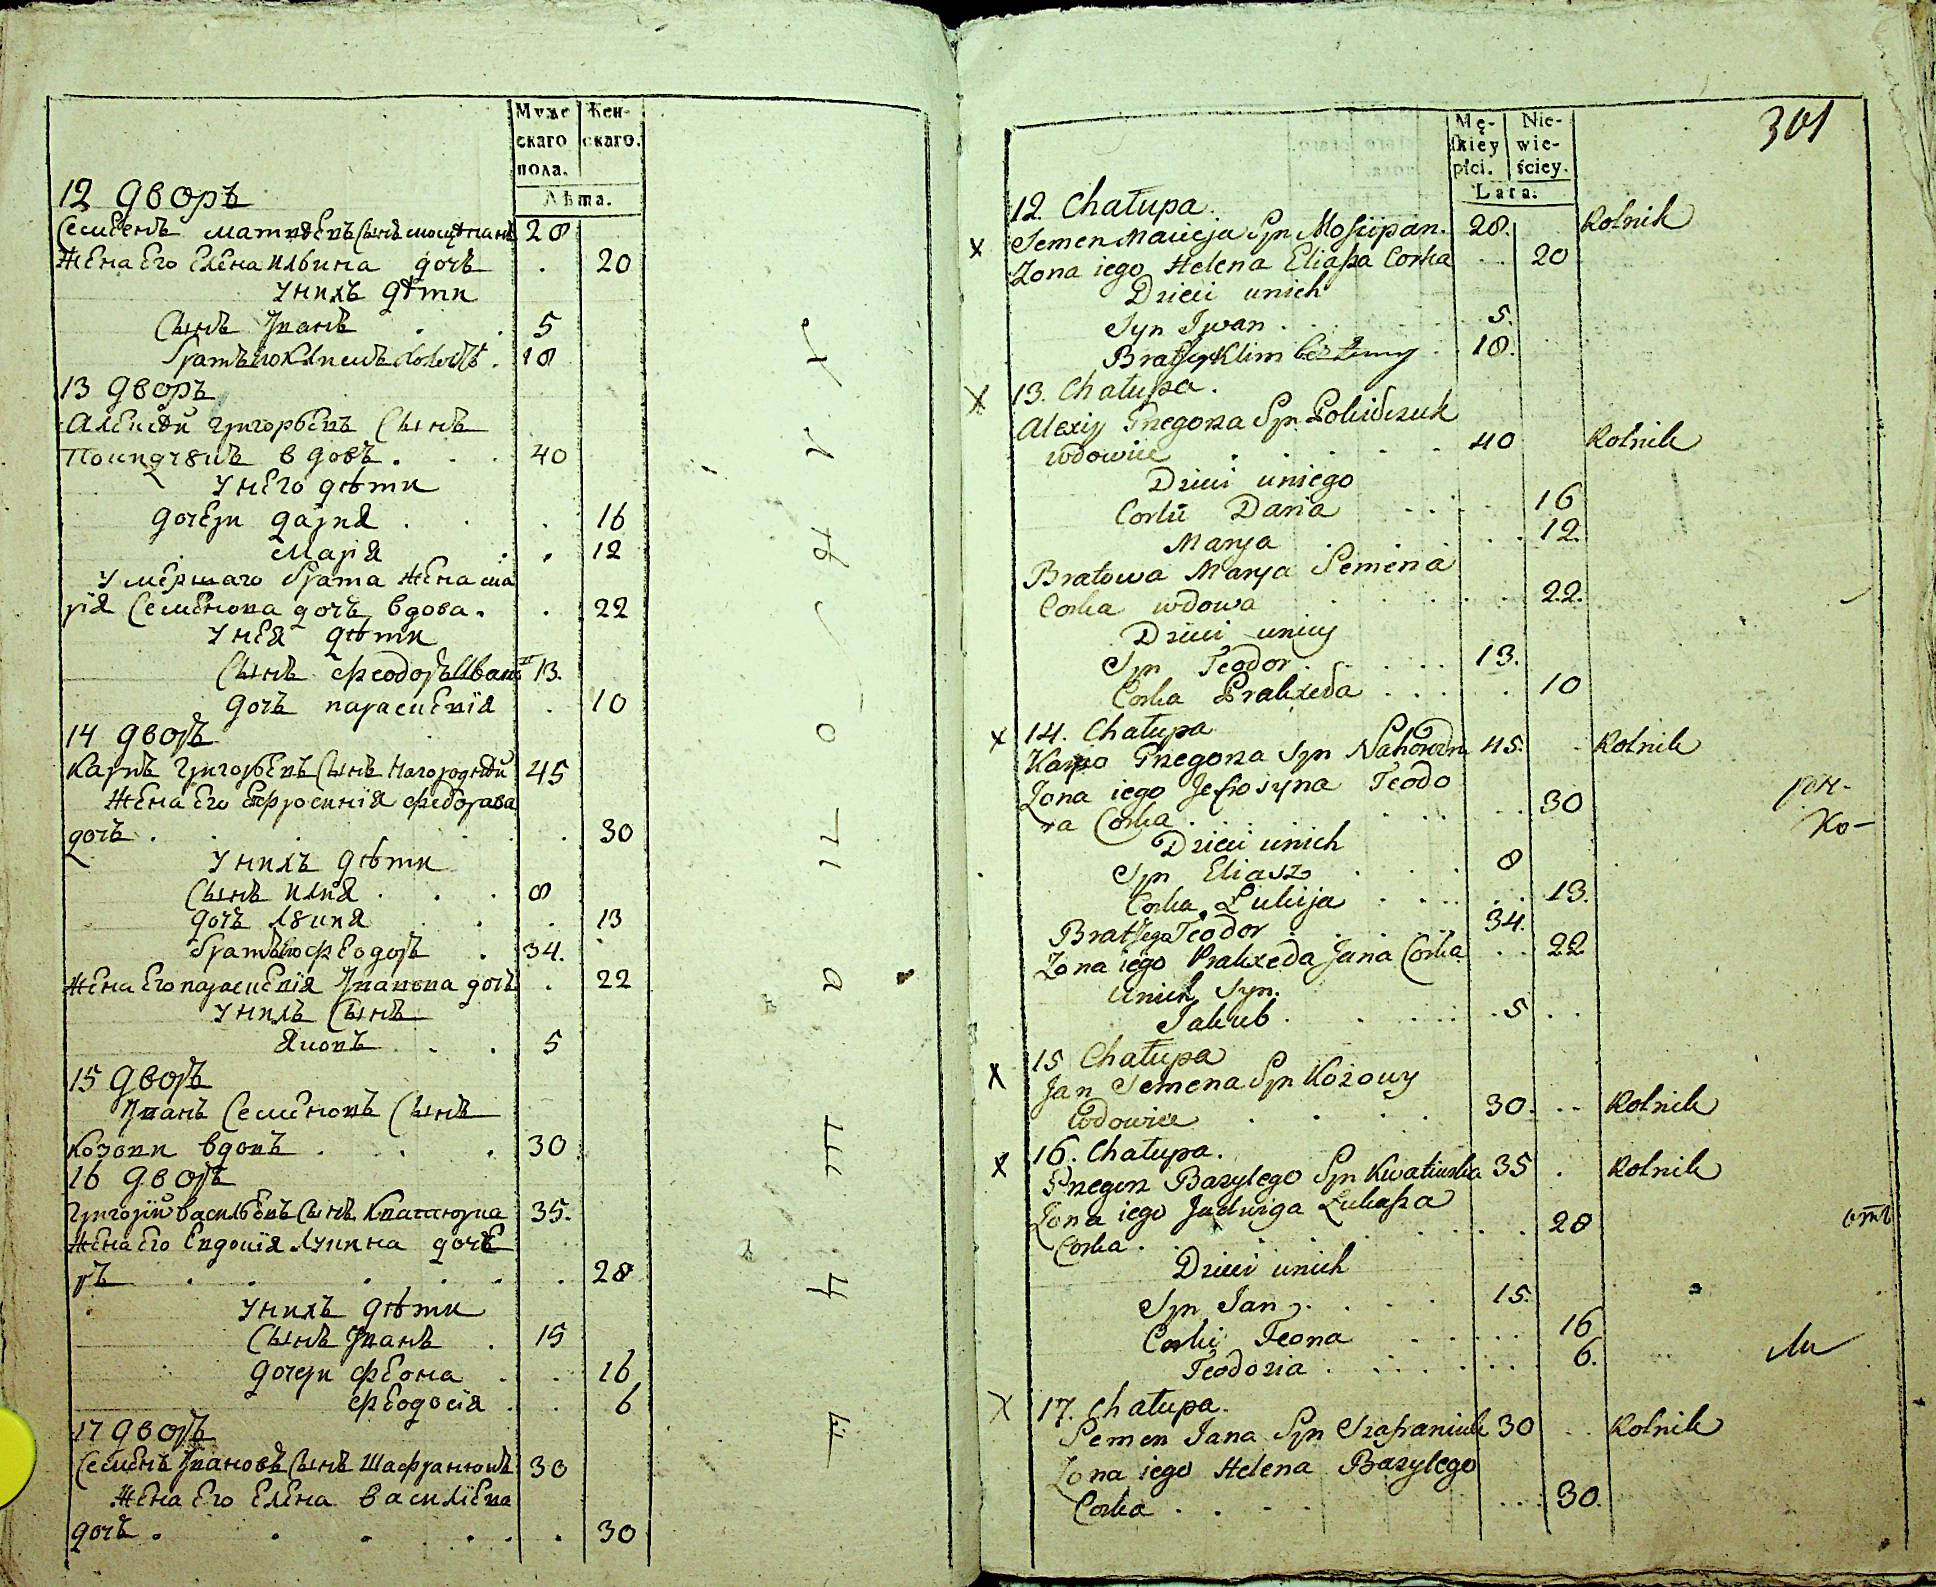 Муже
скаго
пола.
Жен-
скаго.
Лѣта.
12 дворъ
Семенъ Матвѣевъ Сынъ 28
Жена Его Елена Ильина дочь . 20
У нихъ дѣти
Сынъ Иванъ . . 5
братъ Его Климъ . 18
13 дворъ
Алексѣй Григорьевъ Сынъ
вдовъ . . . 40
У Него дѣти
дочери дария . . . 16
Мария . . 12
Умершаго брата жена Ма
рія Семенова дочь вдова . . 22
У Нея дѣти
Сынъ Феодоръ Иванъ 13.
дочь параскевія . 10
14 дворъ
Карпъ Григорьевъ Сынъ Нагородній 45
Жена Его Ефросинія Федорава
дочь . . . . . 30
У нихъ дѣти
Сынъ Илия . . . 8
дочь Лукия . . . 13
братъ Его Феодоръ . 34.
Жена Его параскевія Иванова дочь . 22
У нихъ Сынъ
Яковъ . . 5
15 дворъ
Иванъ Семеновъ Сынъ
Козови вдовъ . . . 30
16 дворъ
Григорій васильевъ Сынъ Кватиюка 35.
Жена Его Евдокія Лукина дочь
ръ . . . . . . 28
У нихъ дѣти
Сынъ Иванъ . 15
дочери Феона . . 16
Феодосія . . 6
17 дворъ
Семенъ Ивановъ Сынъ Шафранюкъ 30
Жена Его Елена василіева
дочь . . . . . . 30
301
Mę-
skiey
płci.
Nie-
wie-
ściey.
Lata.
12. Chałupa.
x Semen Macieja Syn Moscipan. 28. Rolnik
Zona iego Helena Eliasza Corka . . 20
Dzieci unich
Syn Iwan . . . 5.
Brat jego Klim bez żenny . 18.
x 13. Chałupa.
Alexiy Grzegorza Syn
wdowiec . . . . . 40 Rolnik
Dzieci uniego
Corki Daria . . . 16
Marya . . . 12.
Bratowa Marya Semena
Corka wdowa . . . . 22.
Dzieci uniey
Syn Teodor . . . . 13.
Corka Prakseda . . . . 10
x 14. Chałupa
Karpo Grzegorza Syn 45. Rolnik
Zona iego Jefrosyna Teodo
ra Corka . . . . 30
Dzieci unich
Syn Eliasz . . . 8
Corka Lukija . . . 13.
Brat jego Teodor . . . 34.
Zona iego Prakseda Jana Corka . . 22
Unich Syn.
Jakub . . . . 5 . .
x 15 Chałupa
Jan Semena Syn Kozowy
Wdowiec . . . . 30. . . Rolnik
x 16. Chałupa.
Grzegorz Bazylego Syn Kwatiuska 35 . Rolnik
Zona iego Jadwiga Łukasza
Corka . . . . . . 28
Dzieci unich
Syn Jan . . . . 15.
Corki Teona . . . . 16
Teodozia . . . . . 6.
x 17. Chałupa.
Semen Jana Syn 30 . . Rolnik
Zona iego Helena Bazylego
Corka . . . . . . . 30.